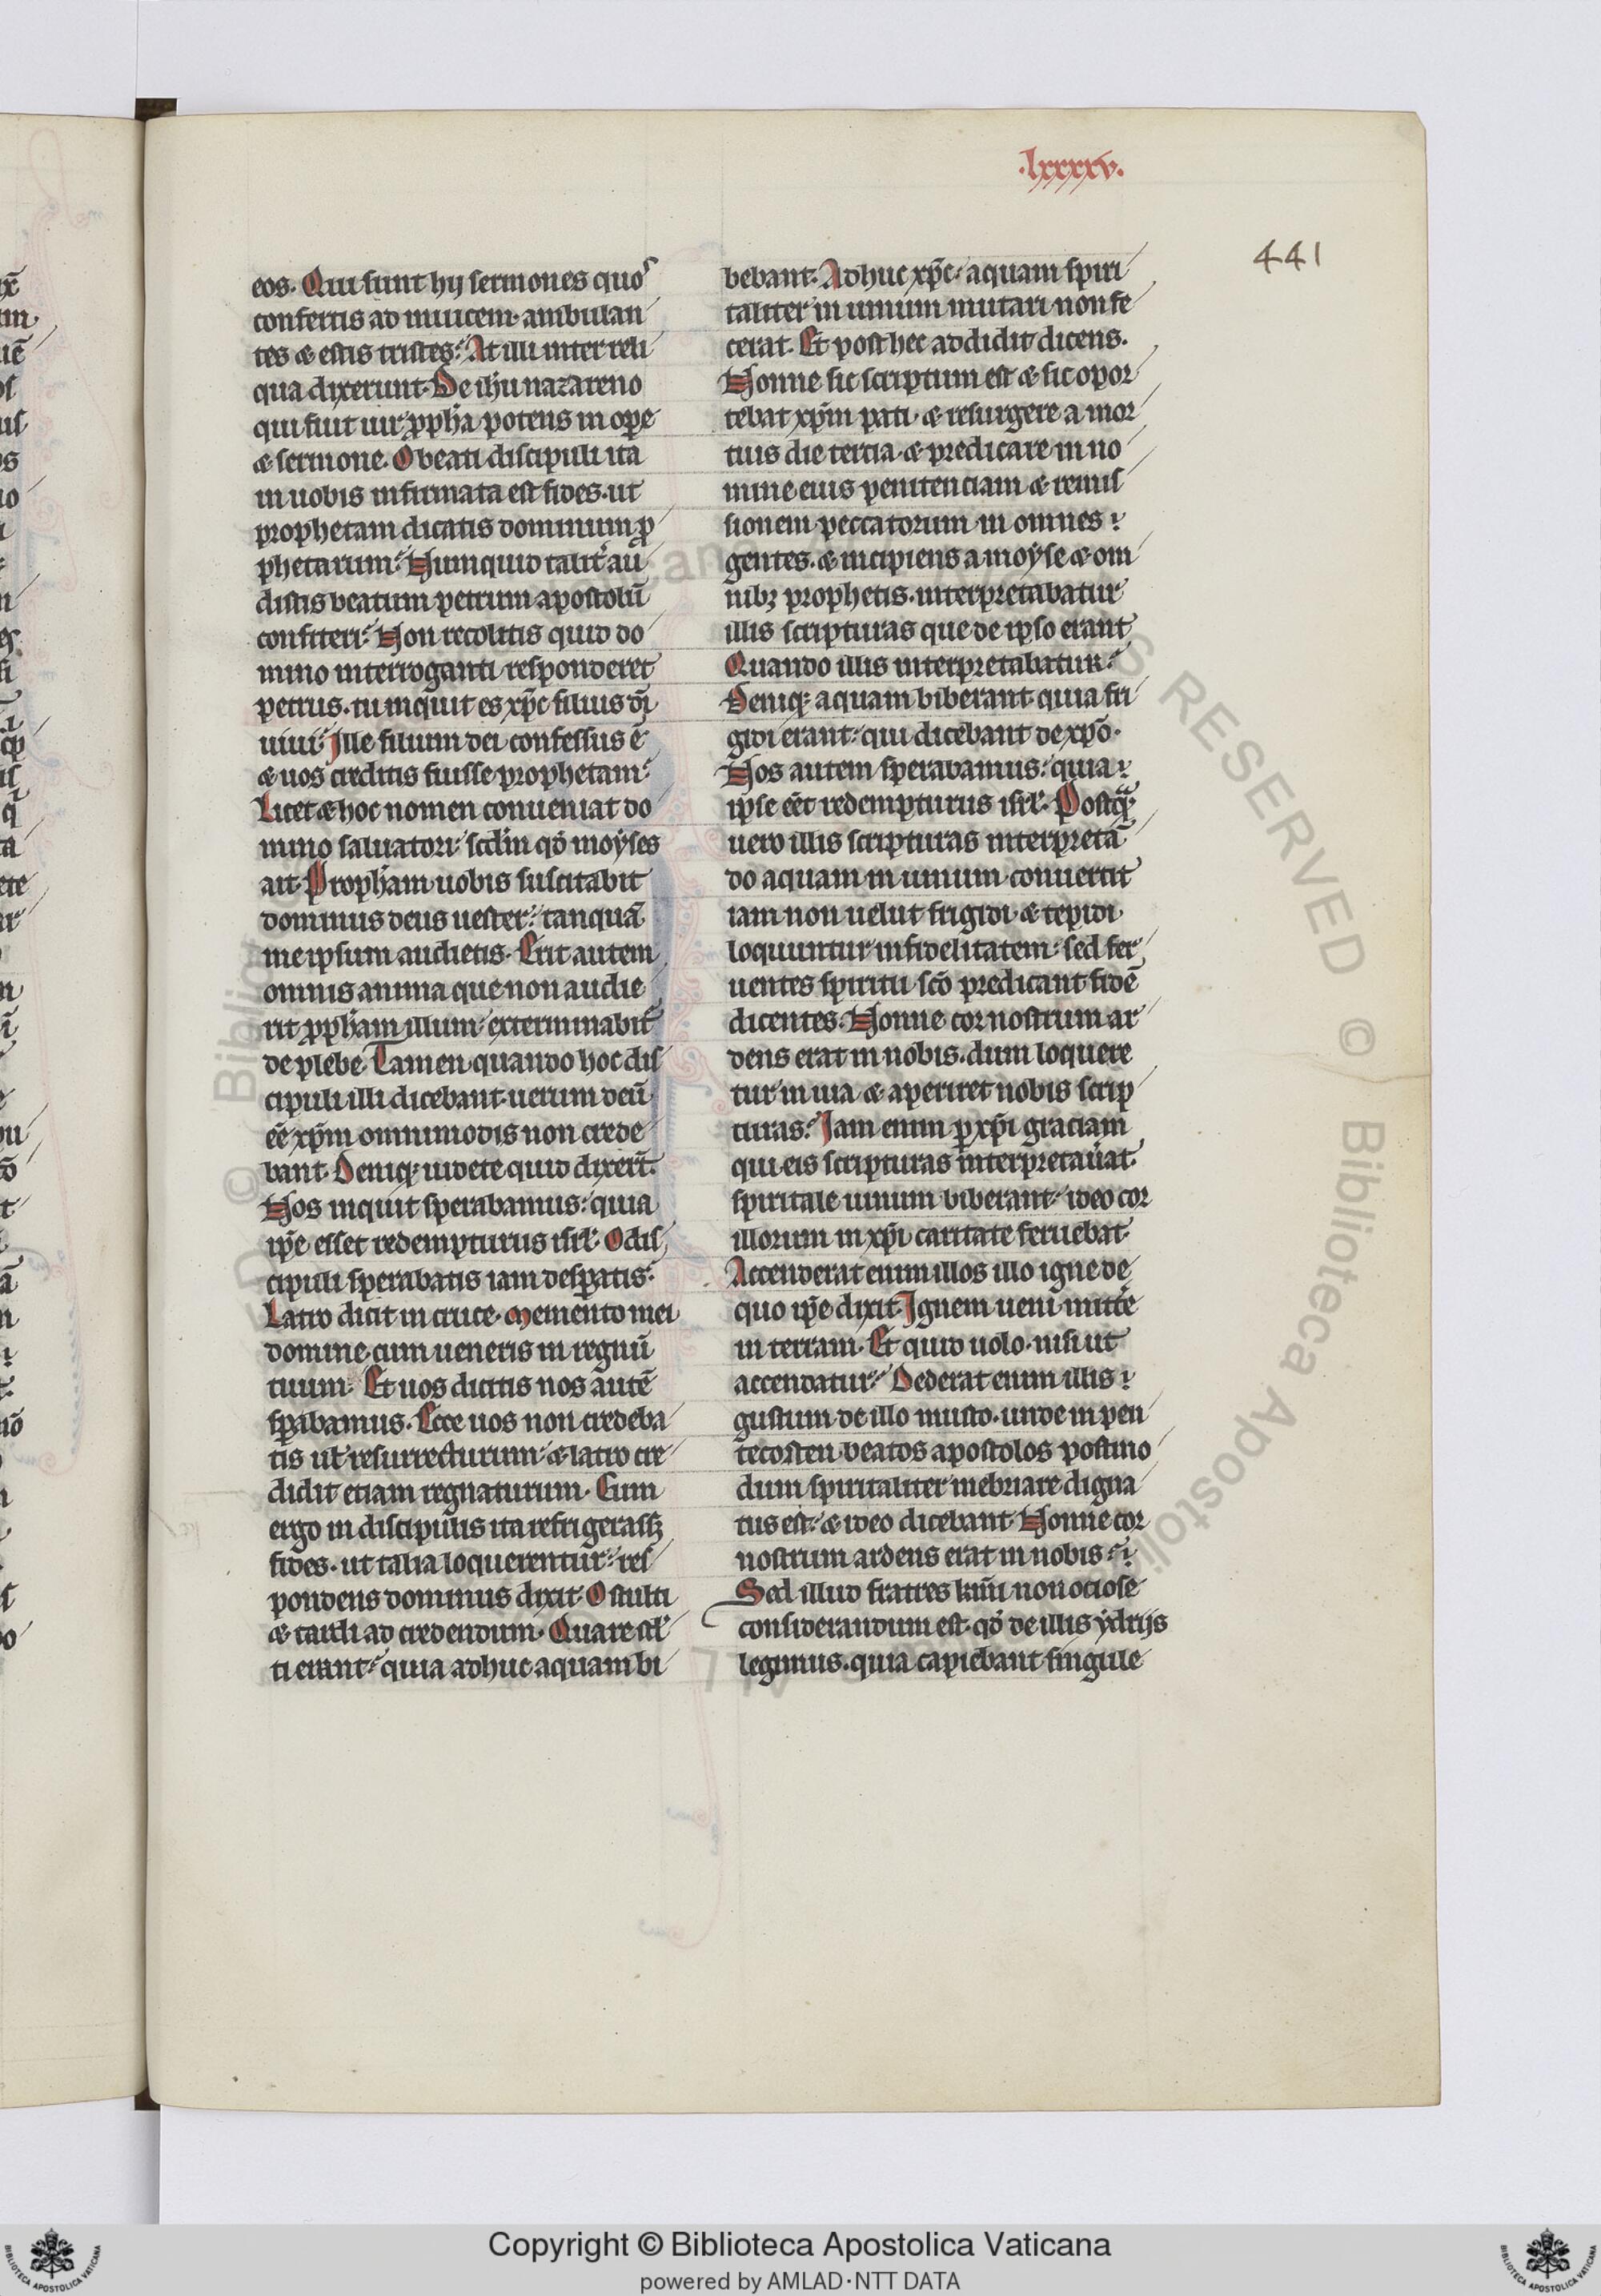 .lxxxxv.
441
eos. Qui sunt hij sermones quos
confertis ad inuicem. ambulan
tes & estis tristes. At illi inter reli
qua dixerunt. De ihu nazareno
qui fuit uir pph̄a potens in ope
& sermone. O beati discipuli ita
in uobis infirmata est fides. ut
prophetam dicatis dominum p̄
phetarum. Numquid talit̄ au
distis beatum petrum apostolū
confiteri. Non recolitis quid do
mino interroganti responderet
petrus. tu inquit es xp̄c filius dī
uiui. Ille filium dei confessus ē
& uos creditis fuisse prophetam.
Licet & hoc nomen conueniat do
mino saluatori. scd̄m qd̄ moyses
ait. Proph̄am uobis suscitabit
dominus deus uester. tanquā
me ipsum audietis. Erit autem
omnis anima que non audie
rit pph̄am illum. exterminabit̄
de plebe. Tamen quando hoc dis
cipuli illi dicebant. uerum deū
eē xp̄m omnimodis non crede
bant. Deniq; uidete quid dixert̄.
Nos inquit sperabamus. quia
ip̄e esset redempturus isrl̄. O dis
cipuli sperabatis iam desp̄atis.
Latro dicit in cruce. Memento mei
domine. cum ueneris in regnū
tuum. Et uos dicitis nos autē
sp̄abamus. Ecce uos non credeba
tis ul̄ resurrecturum. & latro cre
didit etiam regnaturum. Cum
ergo in discipulis ita refrigerass;
fides. ut talia loquerentur. res
pondens dominus dixit. O stulti
& tardi ad credendum. Quare stl̄
ti erant. quia adhuc aquam bi
bebant. Adhuc xp̄c. aquam spiri
taliter in uinum mutari non fe
cerat. Et post hec addidit dicens.
Nonne sic scriptum est & sic opor
tebat xp̄m pati. & resurgere a mor
tuis die tercia. & predicare in no
mine eius penitenciam & remis
sionem peccatorum in omnes
gentes. & incipiens a moyse & om
nib; prophetis. interpretabatur
illis scripturas que de ipso erant
Quando illis interpretabatur.
Deniq; aquam biberant. quia fri
gidi erant. qui dicebant de xp̄o.
Nos autem sperabamus. quia
ipse eēt redempturus isrl̄. Postq̄;
uero illis scripturas interpretā
do aquam in uinum conuertit
iam non uelut frigidi & tepidi
loquuntur infidelitatem. sed fer
uentes spiritu sc̄o predicant fidē
dicentes. Nonne cor nostrum ar
dens erat in nobis. dum loquere
tur in uia & aperiret nobis scrip
turas. Iam enim p xp̄i graciam
qui eis scripturas interpretau̅at.
spiritale uinum biberant. ideo cor
illorum in xp̄i caritate feruebat.
Accenderat enim illos illo igne de
quo ip̄e dixit. Ignem ueni mittē
in terram. Et quid uolo. nisi ut
accendatur. Dederat enim illis
gustum de illo musto. unde in pen
tecosten beatos apostolos postmo
dum spiritaliter inebriare digna
tus est. & ideo dicebant. Nonne cor
nostrum ardens erat in nobis.
Sed illud fratres kmī non ociose
considerandum est. qd̄ de illis ydrijs
legimus. quia capiebant singule
Copyright © Biblioteca Apostolica Vaticana
powered by AMLAD·NTT DATA